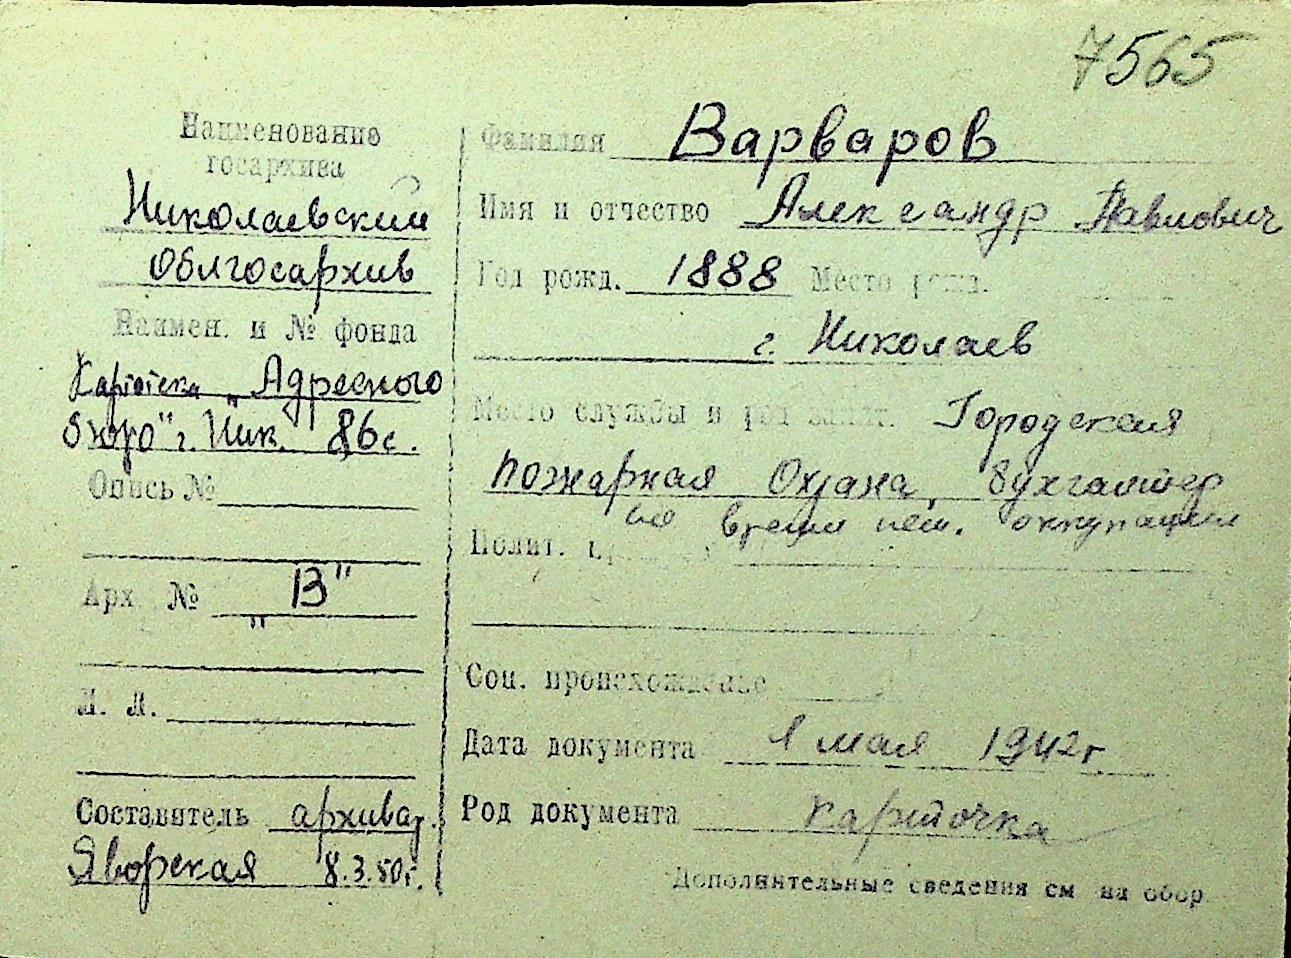 7565
Наименование
госархива
Николаевский
облгосархив
Наимен. и № фонда
Картотека „Адресного
бюро" г. Ник. 86с.
Опись №
Арх. № "В"
Л. Л.
Составитель архивар.
Яворская 8.3.50г.
Фамилия Варваров
Имя и отчество Александр Павлович
Год рожд. 1888 Место рожд.
г. Николаев
Место службы и род занят. Городская
пожарная охрана, бухгалтер
во время нем. оккупации
Полит.
Соц. происхождение
Дата документа 1 мая 1942г
Род документа карточка
Дополнительные сведения см на обор